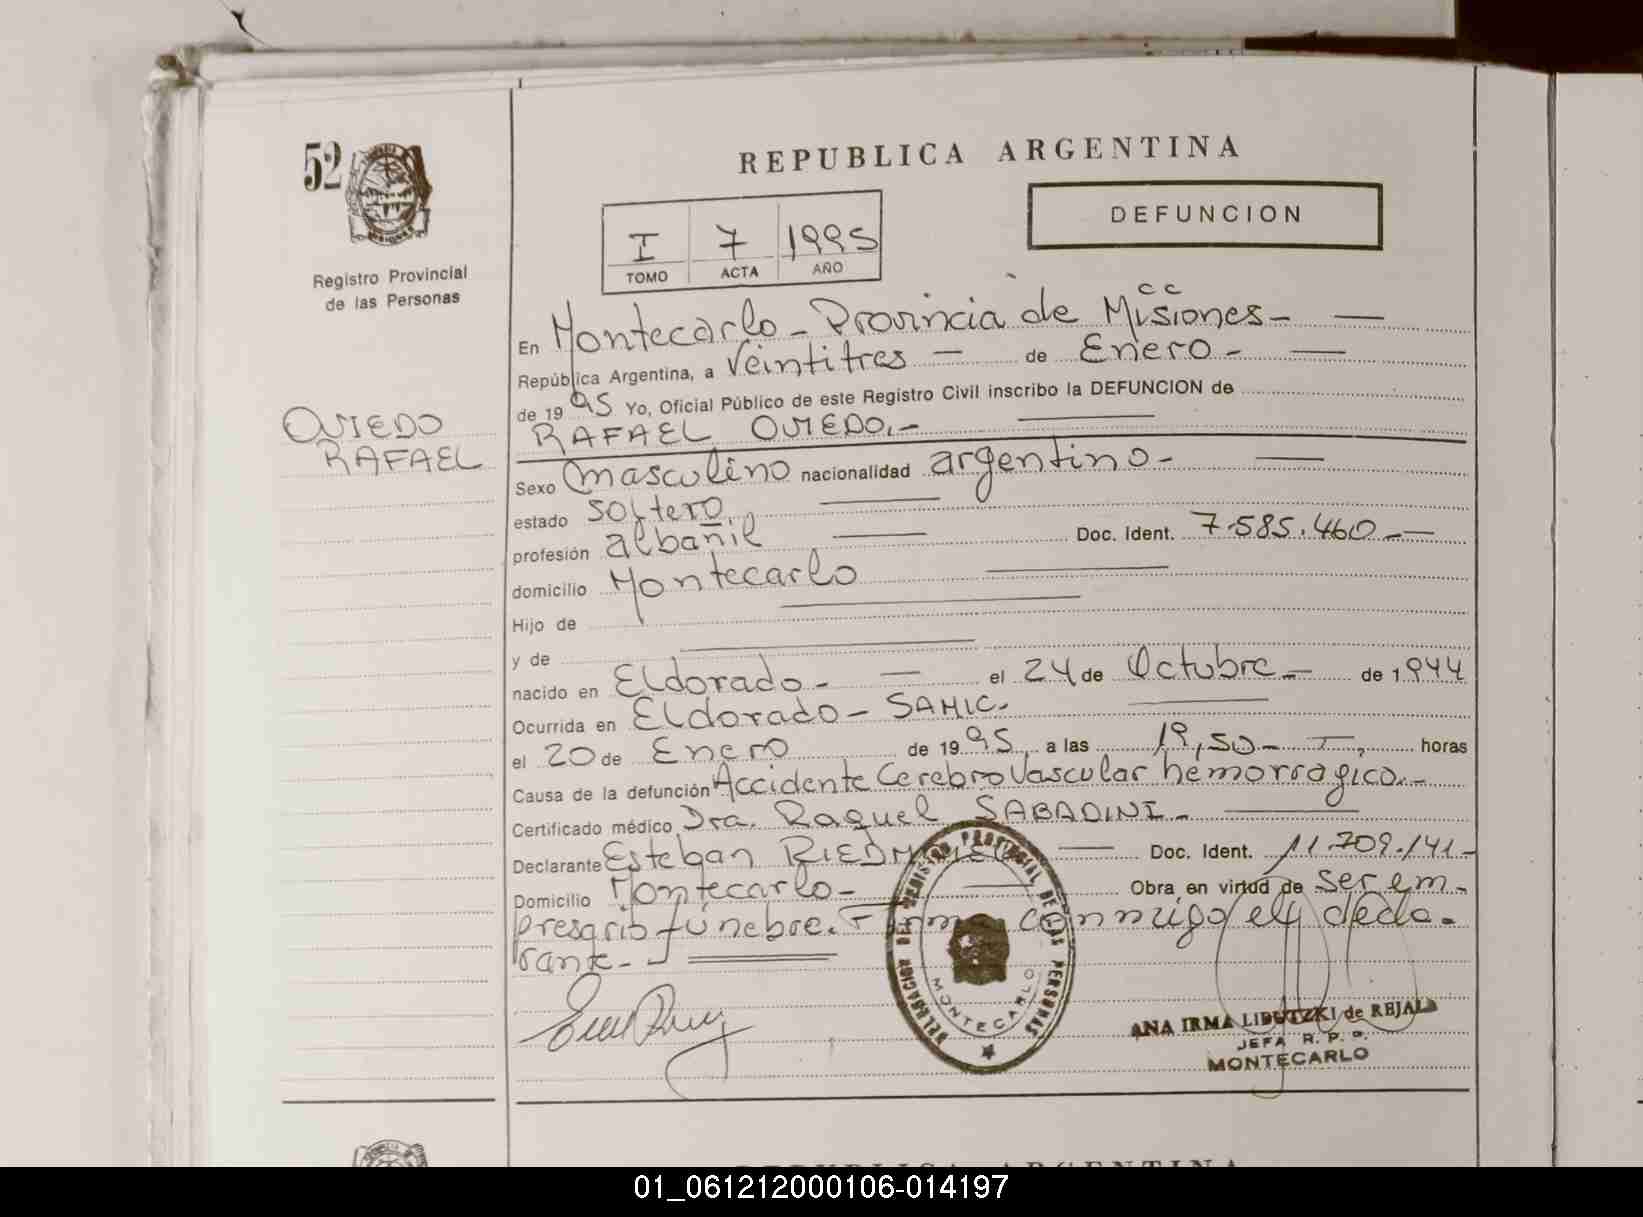 52
Registro Provincial
de las Personas
OVIEDO
RAFAEL
REPUBLICA ARGENTINA
I 7 1995
TOMO ACTA AÑO
DEFUNCION
En Montecarlo - Provincia de Misiones -
República Argentina, a Veintitres - de Enero -
de 1995 Yo, Oficial Público de este Registro Civil inscribo la DEFUNCION de
RAFAEL OVIEDO.-
Sexo masculino nacionalidad argentino -
estado soltero.
profesión albañil Doc. Ident. 7.585.460.-
domicilio Montecarlo
Hijo de
y de
nacido en Eldorado - el 24 de Octubre - de 1.944
Ocurrida en Eldorado - SAMIC.
el 20 de Enero de 1995 a las 19,50 - horas
Causa de la defunción Accidente Cerebro Vascular hemorragico.-
Certificado médico Dra. Raquel SABADINI -
Declarante Esteban Doc. Ident. 11.709.141-
Domicilio Montecarlo - Obra en virtud de ser em-
presario fúnebre. Firma conmigo el decla-
rante.-
DELEGACION DEL REGISTRO PROVINCIAL DE LAS PERSONAS
MONTECARLO
ANA IRMA LIBUTZKI de REJALA
JEFA R. P. P.
MONTECARLO
REPUBLICA ARGENTINA
01_061212000106-014197